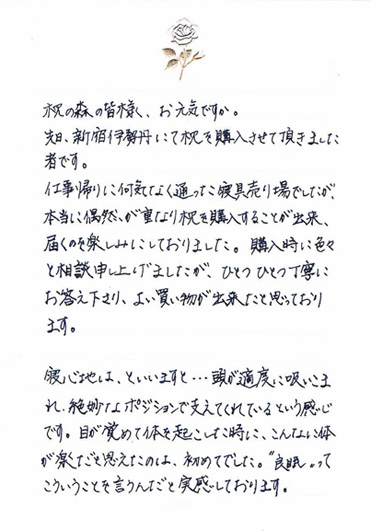 枕の森の皆様、お元気ですか。
先日、新宿伊勢丹にて枕を購入させて頂きました
者です。
仕事帰りに何気なく通った寝具売り場でしたが、
本当に偶然が重なり枕を購入することが出来、
届くのを楽しみにしておりました。購入時に色々
と相談申し上げましたが、ひとつひとつ丁寧に
お答え下さり、よい買い物が出来たと思っており
ます。
寝心地は、といいますと…頭が適度に吸いこま
れ、絶妙なポジションで支えてくれているという感じ
です。目が覚めて体を起こした時に、こんなに体
が楽だと思えたのは、初めてでした。“良眠”って
こういうことを言うんだと実感しております。